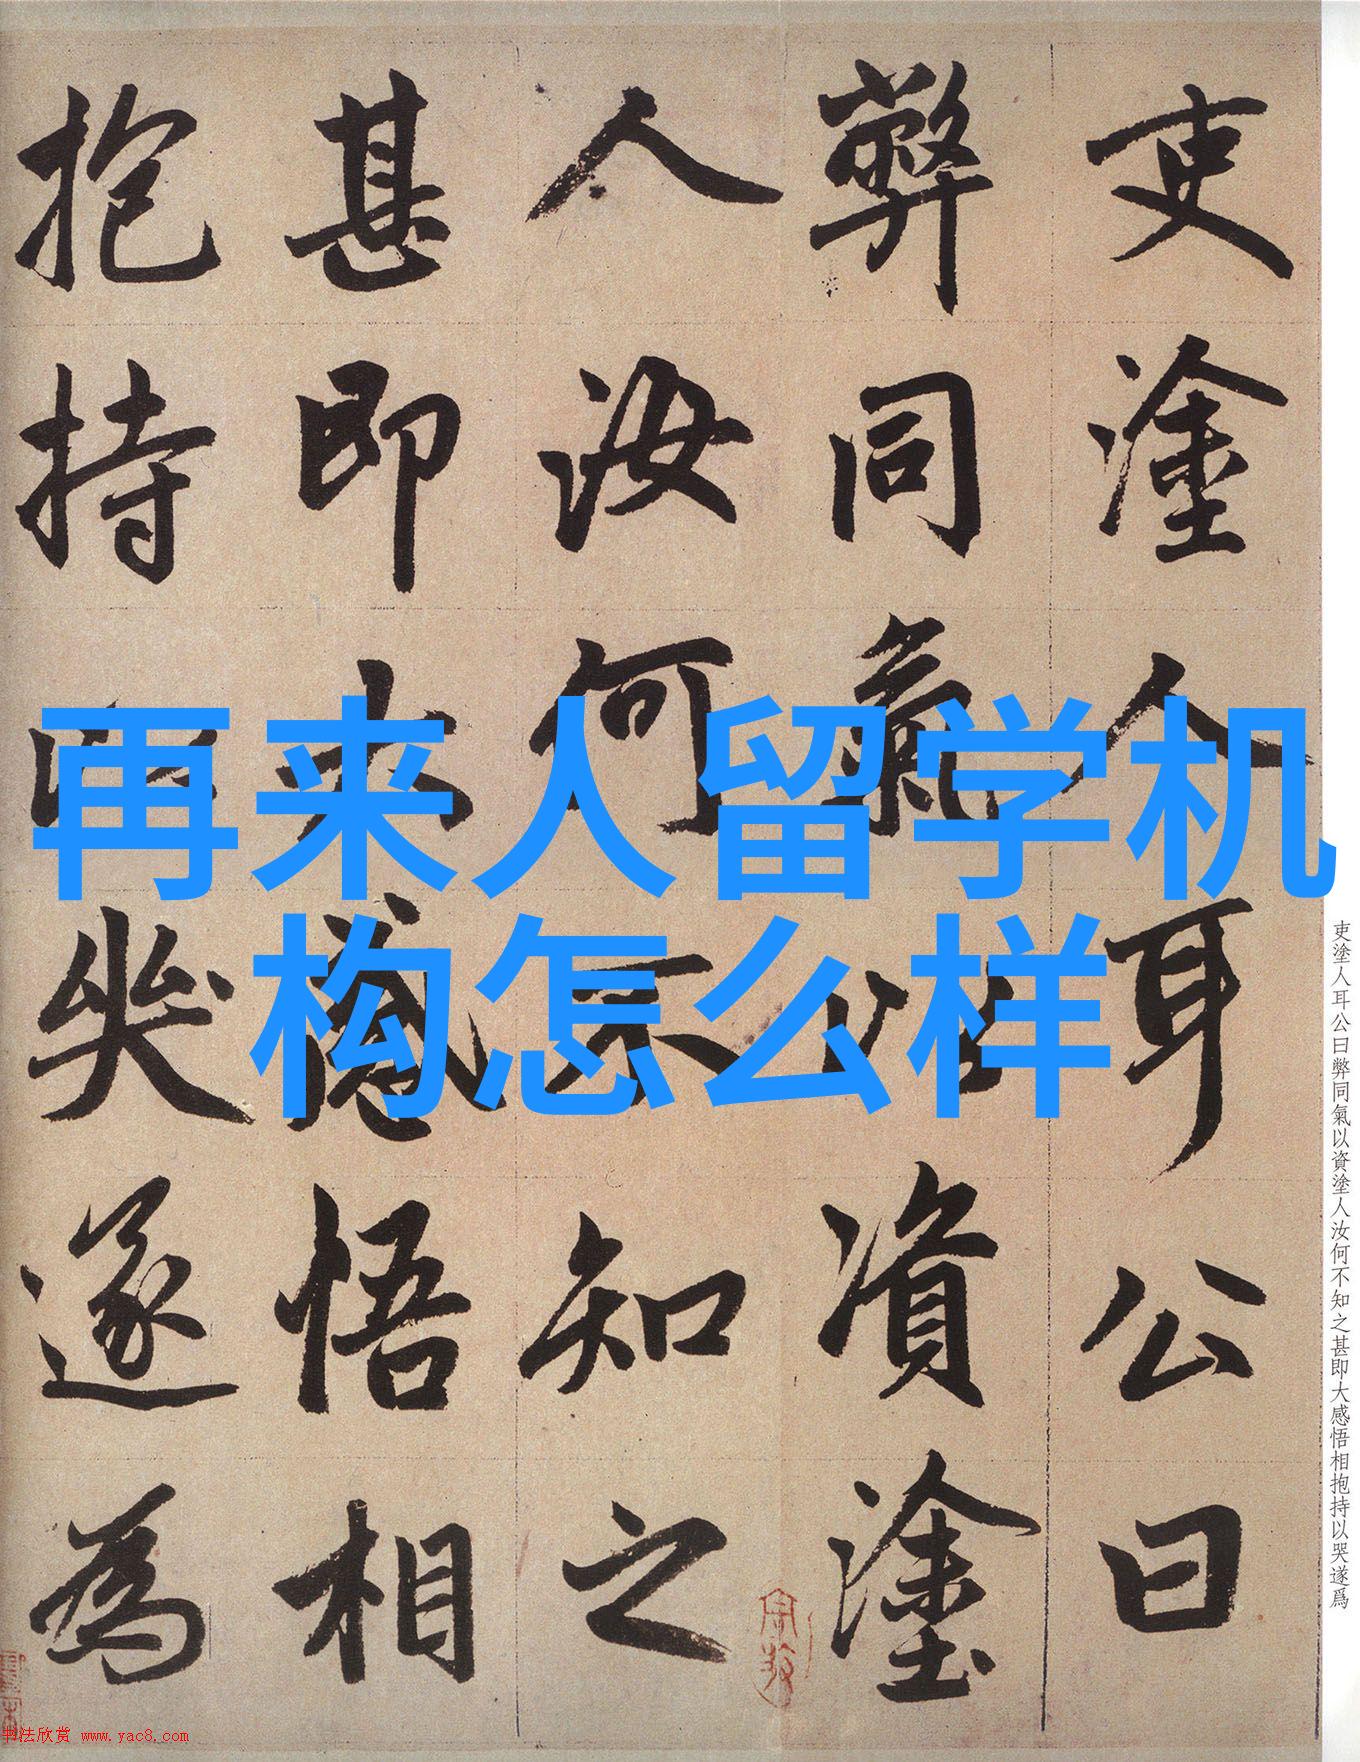 吏塗人耳公曰
弊同氣以資塗
人汝何不知之
甚即大感悟相
抱持以哭遂為
再来人留学机
构怎么样
吏塗人耳公曰弊同氣以資塗人汝何不知之甚即大感悟相抱持以哭遂爲
书法欣赏 www.yac8.com